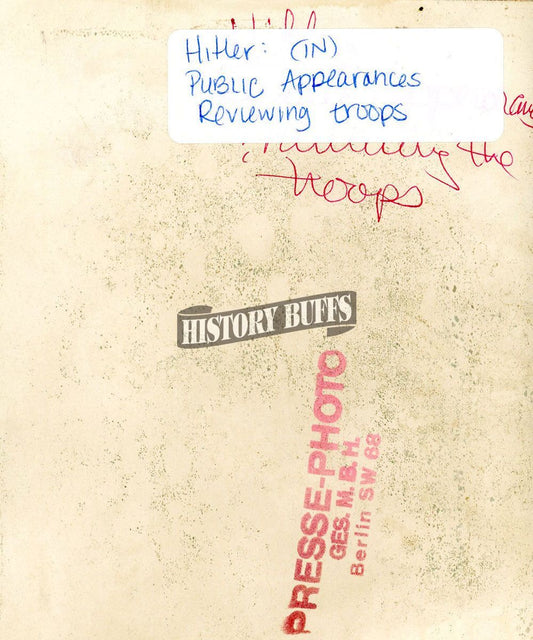 Hitler: (IN)
PUBLIC Appearances
Reviewing troops
the
troops
HISTORY BUFFS
PRESSE-PHOTO
GES. M. B. H.
Berlin SW 68